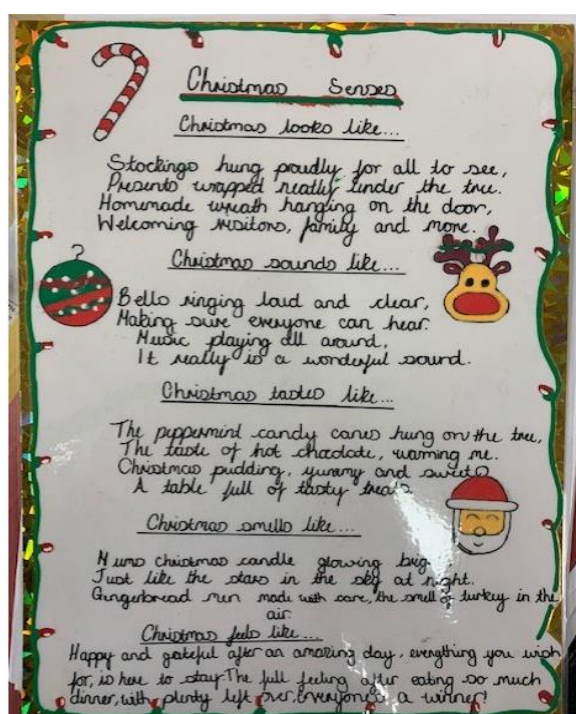 Christmas Senses
Christmas looks like...
Stockings hung proudly for all to see,
Presents wrapped neatly under the tree.
Homemade wreath hanging on the door,
Welcoming visitors, family and more.
Christmas sounds like...
Bells ringing loud and clear,
Making sure everyone can hear.
Music playing all around,
It really is a wonderful sound.
Christmas tastes like...
The peppermint candy canes hung on the tree,
The taste of hot chocolate, warming me.
Christmas pudding, yummy and sweet
A table full of tasty treats
Christmas smells like...
Mums christmas candle glowing
Just like the stars in the sky at night.
Gingerbread men made with care, the smell of turkey in the
air.
Christmas feels like...
Happy and grateful after an amazing day, everything you wish
for, is here to stay. The full feeling after eating so much
dinner, with plenty left over, everyone's a winner!